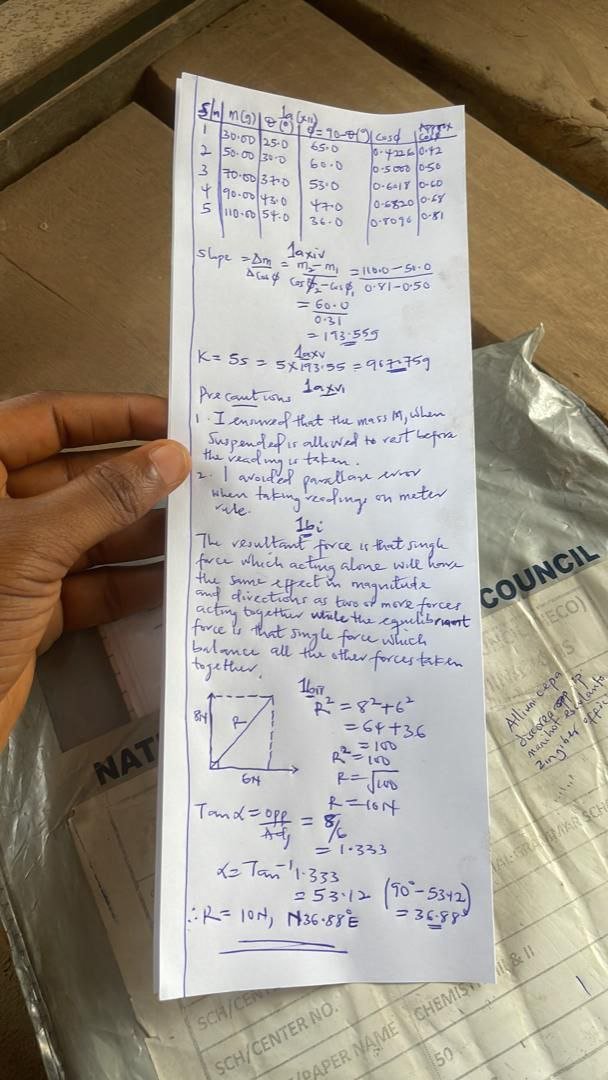 1a(xii)
S/n m(g) θ(°) ϕ=90-θ(°) cosϕ Approx cosϕ
1 30.00 25.0 65.0 0.4226 0.42
2 50.00 30.0 60.0 0.5000 0.50
3 70.00 37.0 53.0 0.6018 0.60
4 90.00 43.0 47.0 0.6820 0.68
5 110.00 54.0 36.0 0.8090 0.81
1axiv
Slope = Δm/ΔCosϕ = m2-m1/Cosϕ2-Cosϕ1 = 110.0-50.0/0.81-0.50
= 60.0/0.31
= 193.55g
1axv
K = 5s = 5×193.55 = 967.75g
1axvi
Precautions
1. I ensured that the mass M, when
suspended is allowed to rest before
the reading is taken.
2. I avoided parallax error
when taking readings on meter
rule.
1bi
The resultant force is that single
force which acting alone will have
the same effect in magnitude
and directions as two or more forces
acting together while the equilibrant
force is that single force which
balance all the other forces taken
together.
1bii
8N
R
6N
R² = 8²+6²
= 64+36
= 100
R² = 100
R = √100
R = 10N
Tan α = opp/Adj = 8/6
= 1.333
α = Tan⁻¹ 1.333
= 53.12 (90°-5312)
= 36.88°
∴ R = 10N, N36.88°E
NAT
COUNCIL
(NECO)
Allium cepa
zingiber offici
SCH/CENTER NO.
CHEMIST
III & II
/PAPER NAME
50